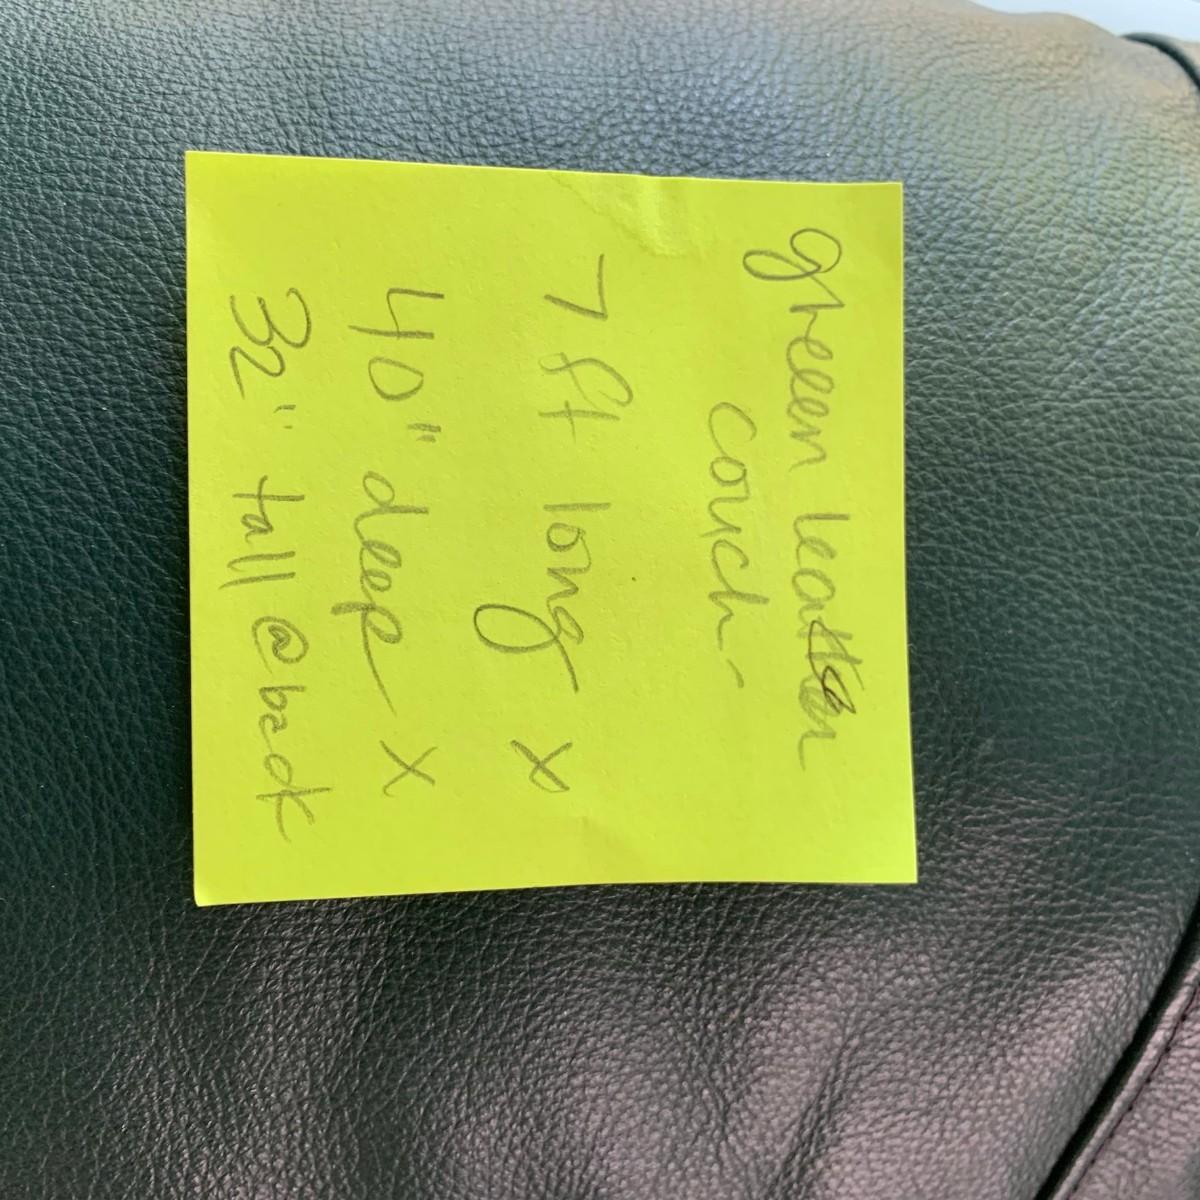 green leather
couch -
7 ft long x
40" deep x
32" tall @ back